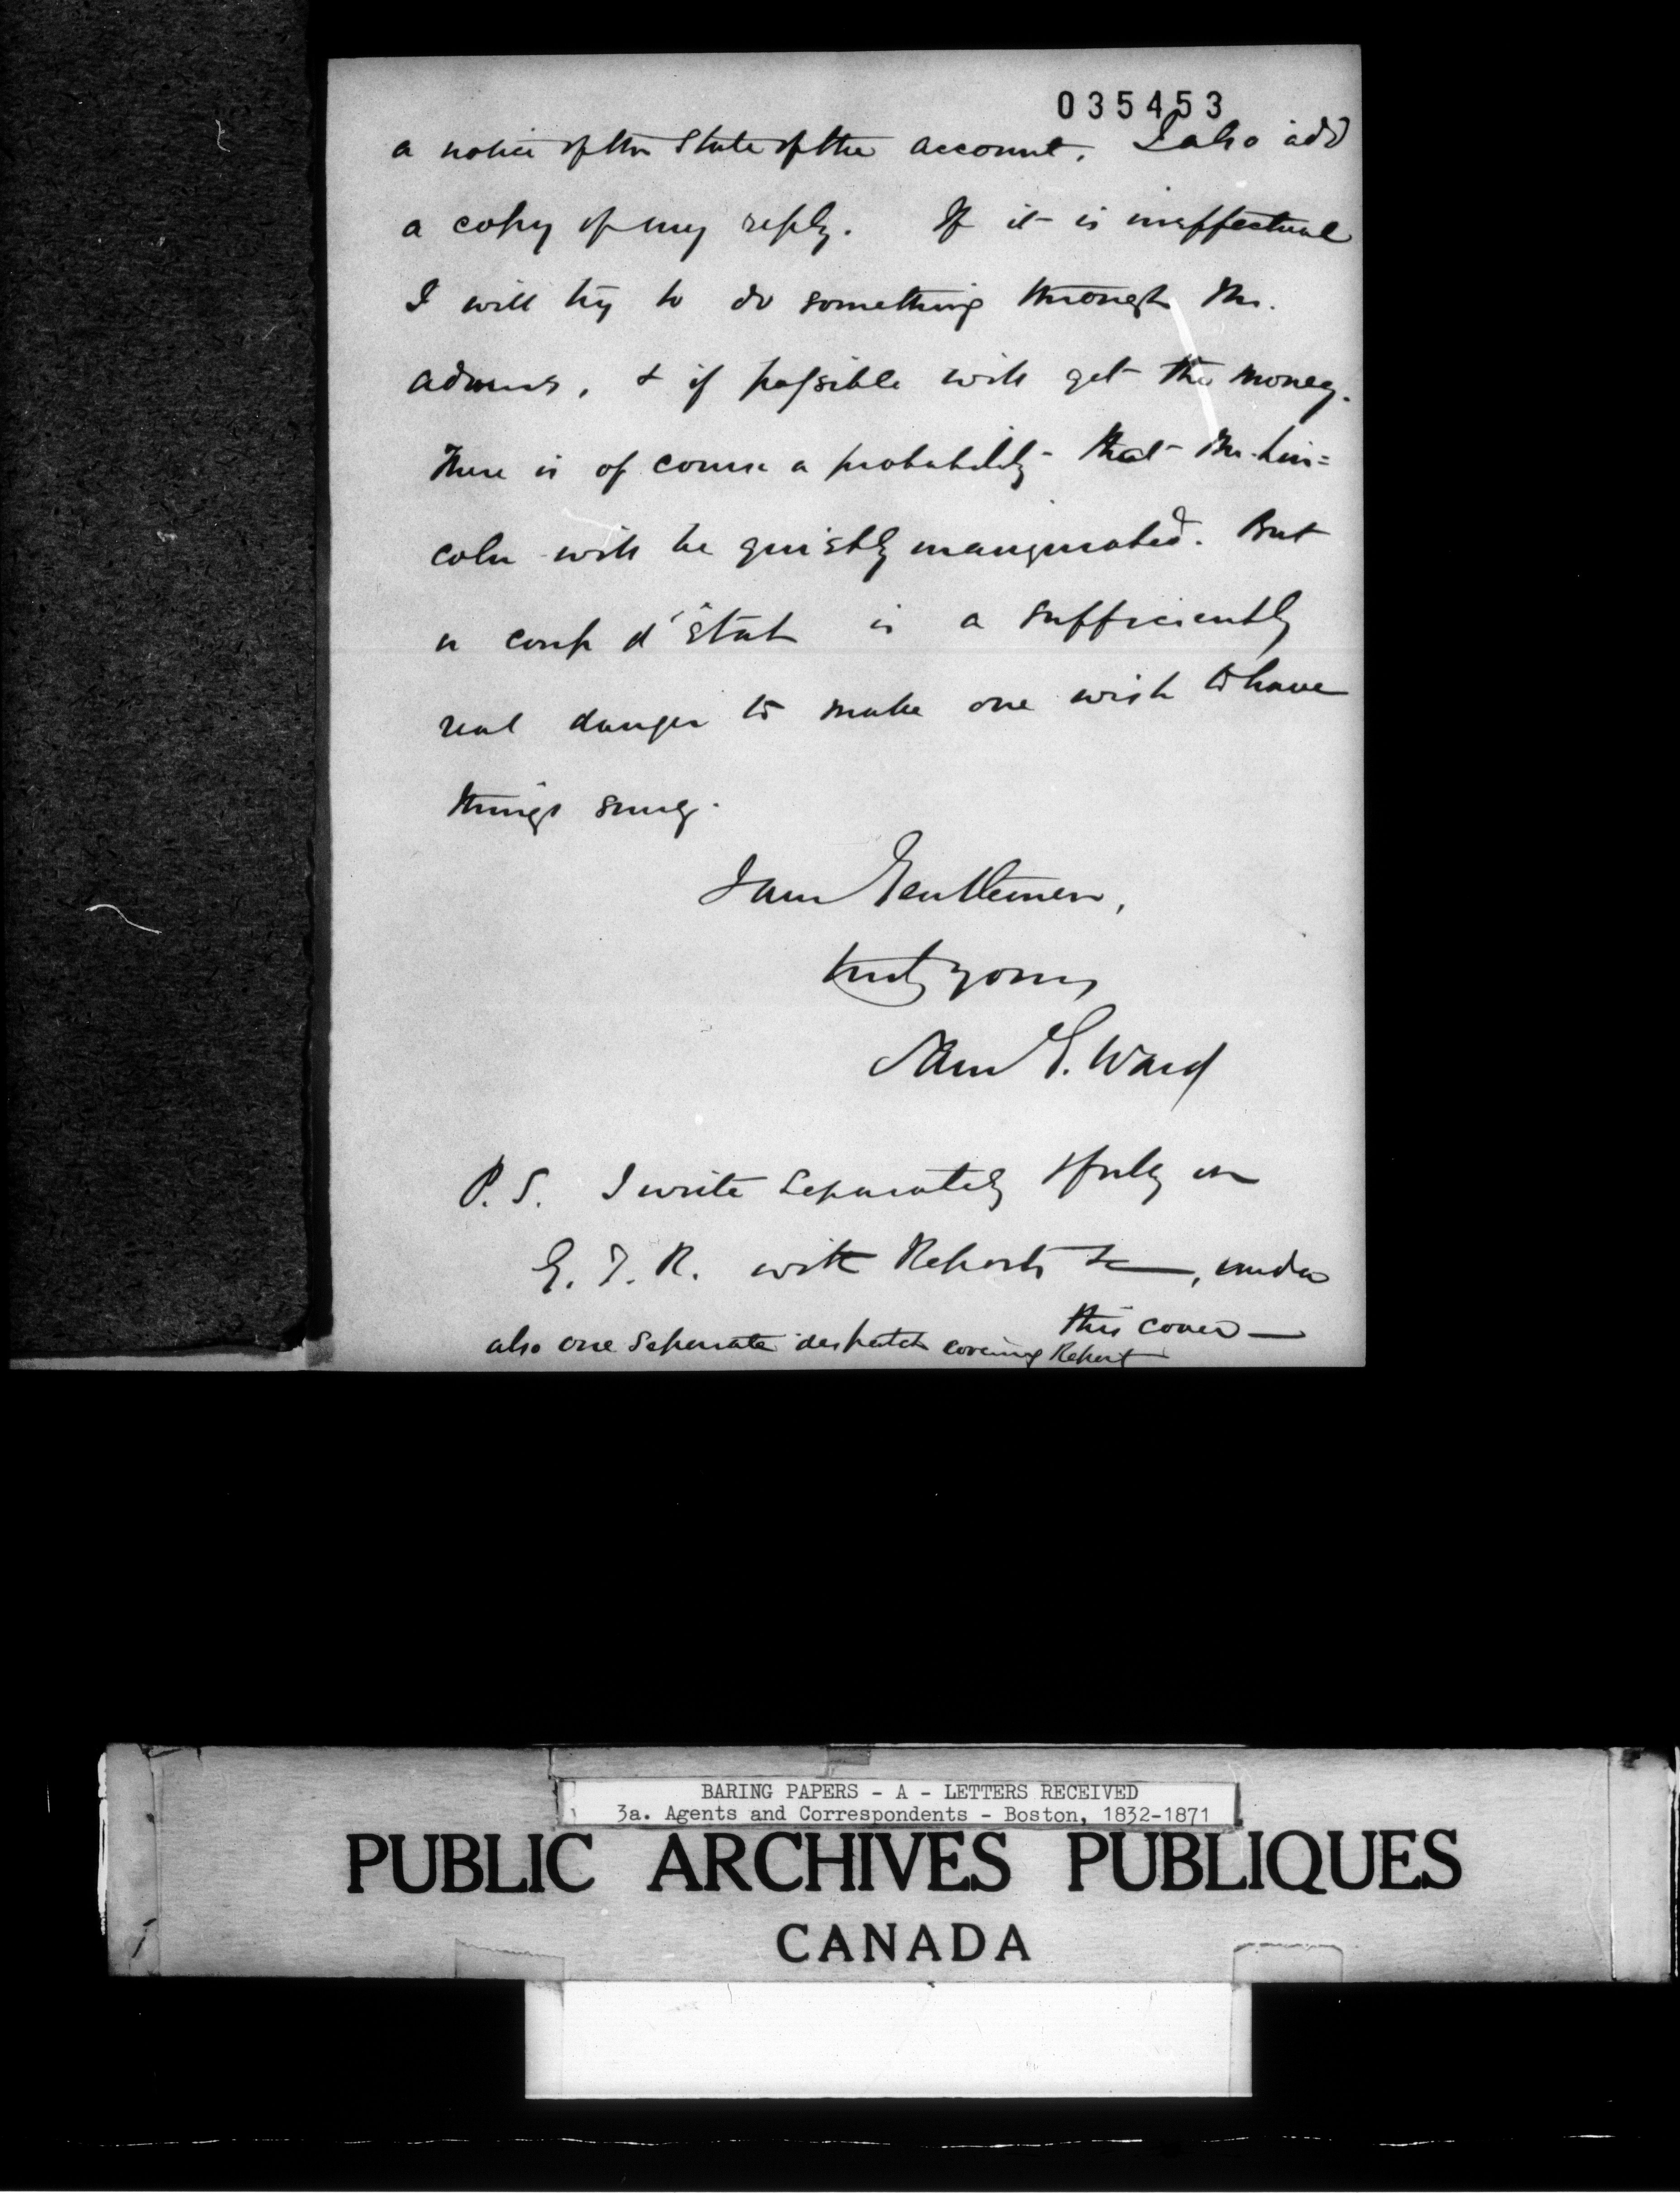 035453
a notice of the State of the account. I also add
a copy of my reply. If it is ineffectual
I will try to do something through Mr.
Adams, & if possible will get the money.
There is of course a probability that Mr. Lin=
coln will be quietly inaugurated. But
a coup d'état is a sufficiently
real danger to make one wish to have
things snug.
I am Gentlemen,
truly yours
Sam G. Ward
P.S. I write separately & fully on
G. T. R. with Reports &c, under
this cover
also one separate despatch covering Report
BARING PAPERS - A - LETTERS RECEIVED
3a. Agents and Correspondents - Boston, 1832-1871
PUBLIC ARCHIVES PUBLIQUES
CANADA